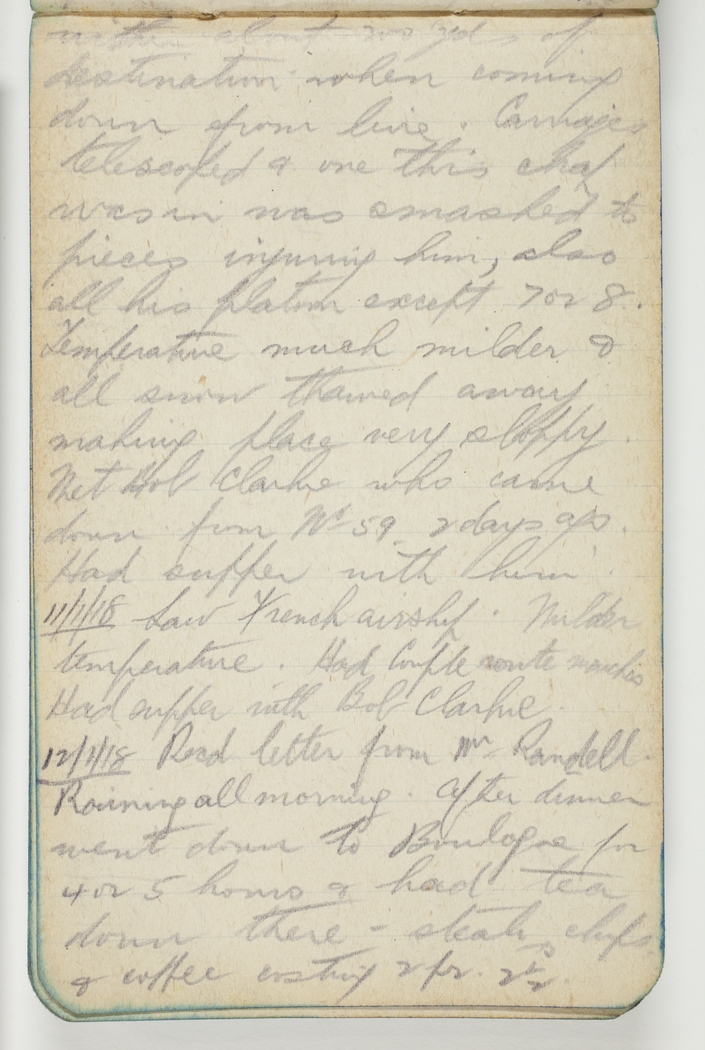 within about 200 yds of
destination when coming
down from line. Carriages
telescoped & one this chap
was in was smashed to
pieces injuring him, also
all his platoon except 7 or 8.
Temperature much milder &
all snow thawed away
making place very sloppy.
Met Bob Clarke who came
down from No 59 2 days ago.
Had supper with him.
11/1/18 Saw French airship. Milder
temperature. Had couple route marches
Had supper with Bob Clarke.
12/1/18 Recd letter from Mr Randell.
Raining all morning. After dinner
went down to Boulogne for
4 or 5 hours & had tea
down there - steak, chips
& coffee costing 2 fr.